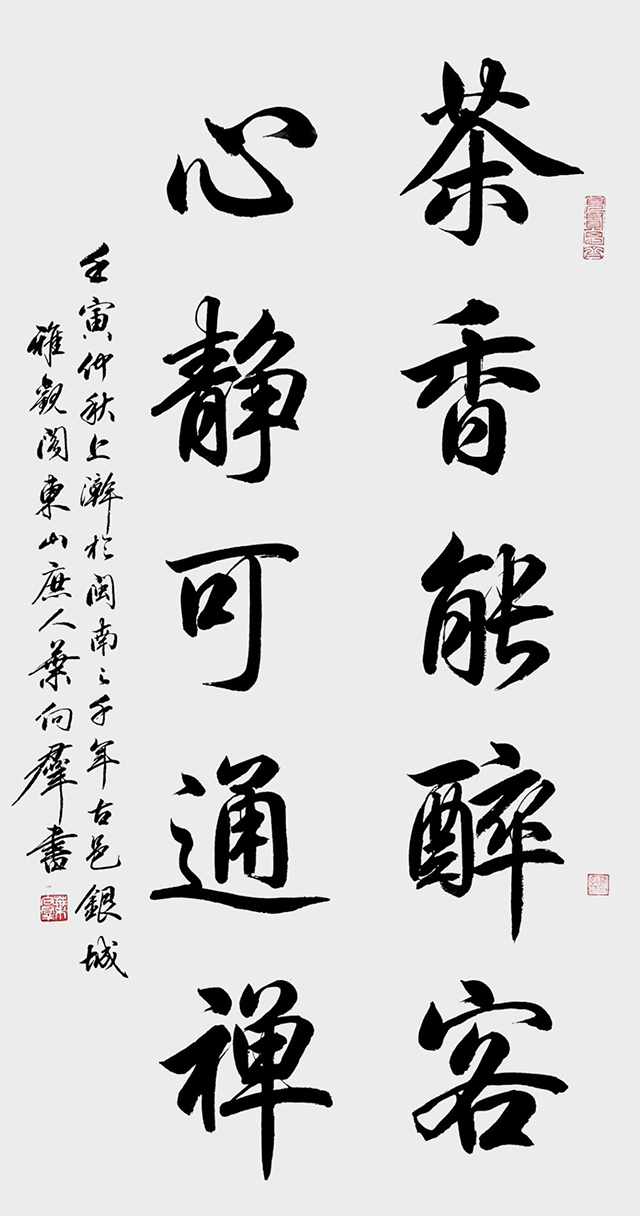 茶香能醉客
心静可通禅
壬寅仲秋上澣於闽南之千年古邑銀城
雅觀阁東山庶人葉向群書